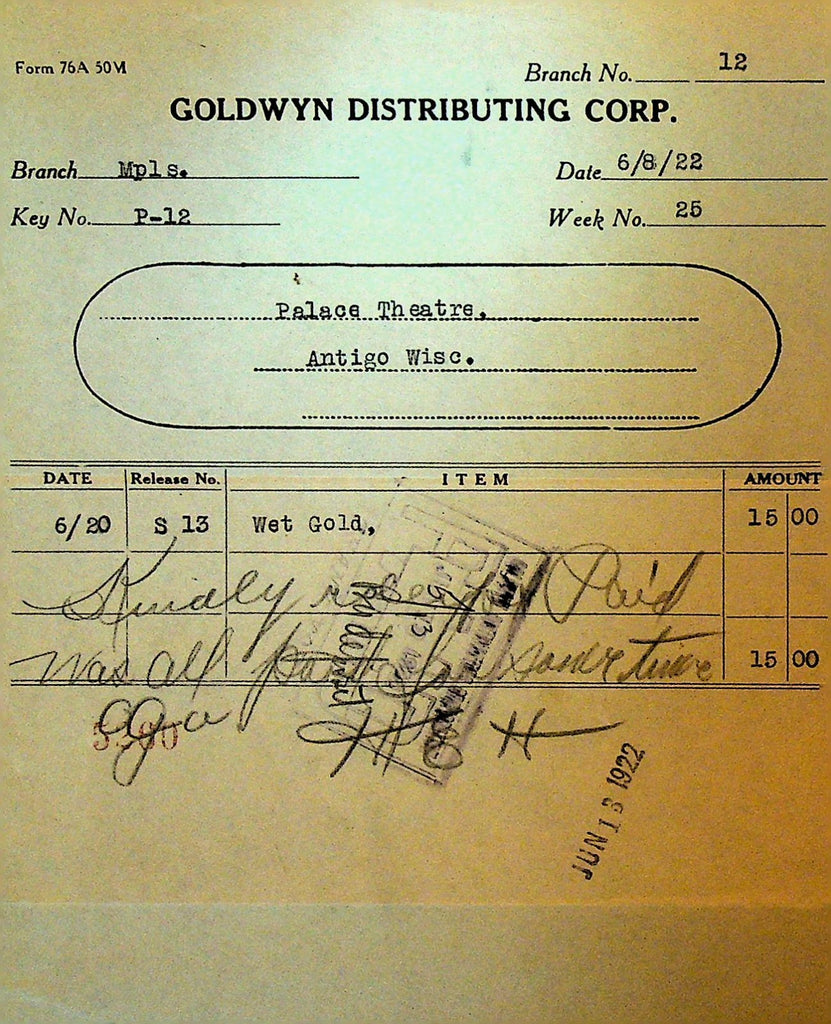 Form 76A 50M
Branch No. 12
GOLDWYN DISTRIBUTING CORP.
Branch Mpls.
Date 6/8/22
Key No. P-12
Week No. 25
Palace Theatre.
Antigo Wisc.
DATE Release No. ITEM AMOUNT
6/20 S 13 Wet Gold, 15 00
Kindly Paid
was all time 15 00
ago H
JUN 13 1922